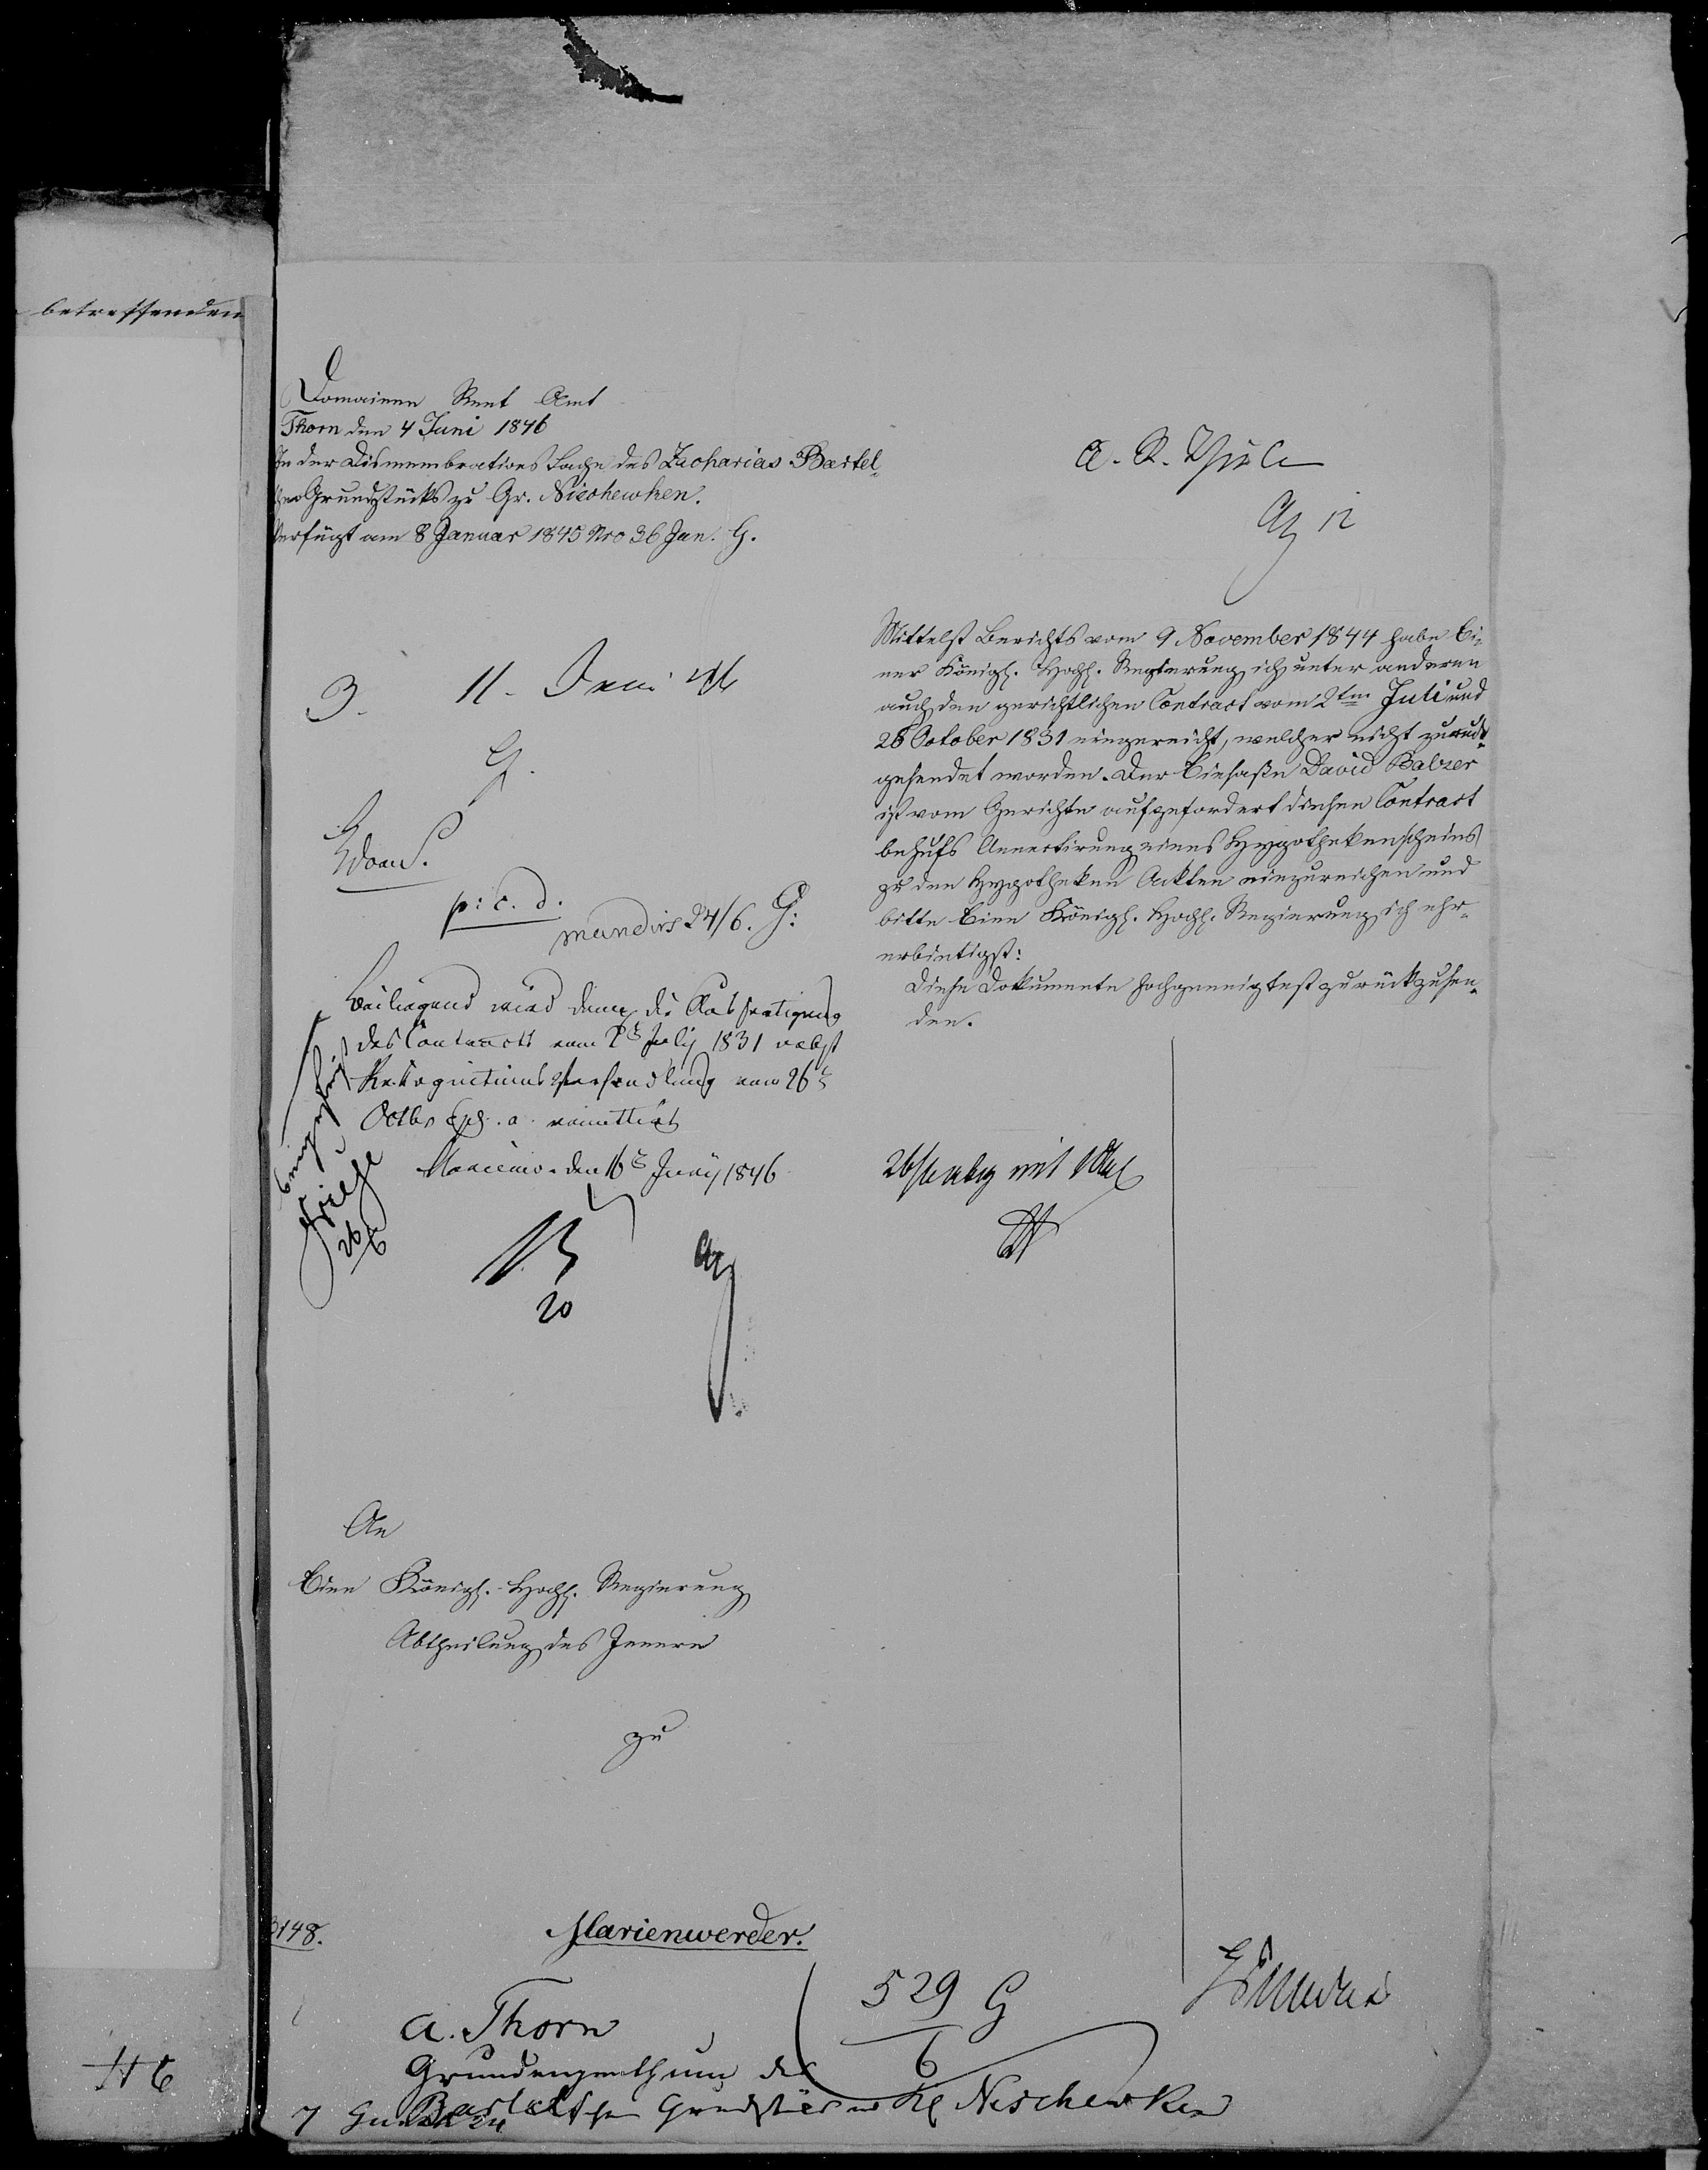 betreffenden
Domainen Rent Amt
Thorn den 4 Juni 1846
In der Dismembrations Sache des Zacharias Bartel-
schen Grundstücks zu Gr. Nieschewken.
Verfügt am 8 Januar 1845 Nro 36 Jan. G.
A. R. Thiele
12
3. 11. Juni 46
G.
p: c. d.
mundirt 24/6. G:
Beiliegend wird die Ausfertigung
des Contracts vom 2t July 1831 nebst
Rekognitions Verhandlung vom 26t
Octbr ej. a. remittirt
Marienw. den 16t Juny 1846
20
26/6
Mittelst Berichts vom 9 November 1844 habe Ei-
ner Königl. Hochl. Regierung ich unter anderen
auch den gerichtlichen Contract vom 2ten Juli und
26 October 1831 eingereicht, welcher nicht zurück-
gesendet worden. Der Einsaße David Balzer
ist vom Gerichte aufgefordert diesen Contract
behufs Annectirung eines Hypothekenscheins
zu den Hypotheken Ackten einzureichen und
bitte Eine Königl. Hochl. Regierung ich ehr-
erbietigst:
diese Dokumente hochgeneigtest zurückzusen-
den.
mit
An
Eine Königl. Hochl. Regierung
Abtheilung des Innern
zu
3148.
Marienwerder.
a. Thorn
529 G
6
Grundeigenthum
Bartelschen Grundstücks Kl Nischewken
7
H 6